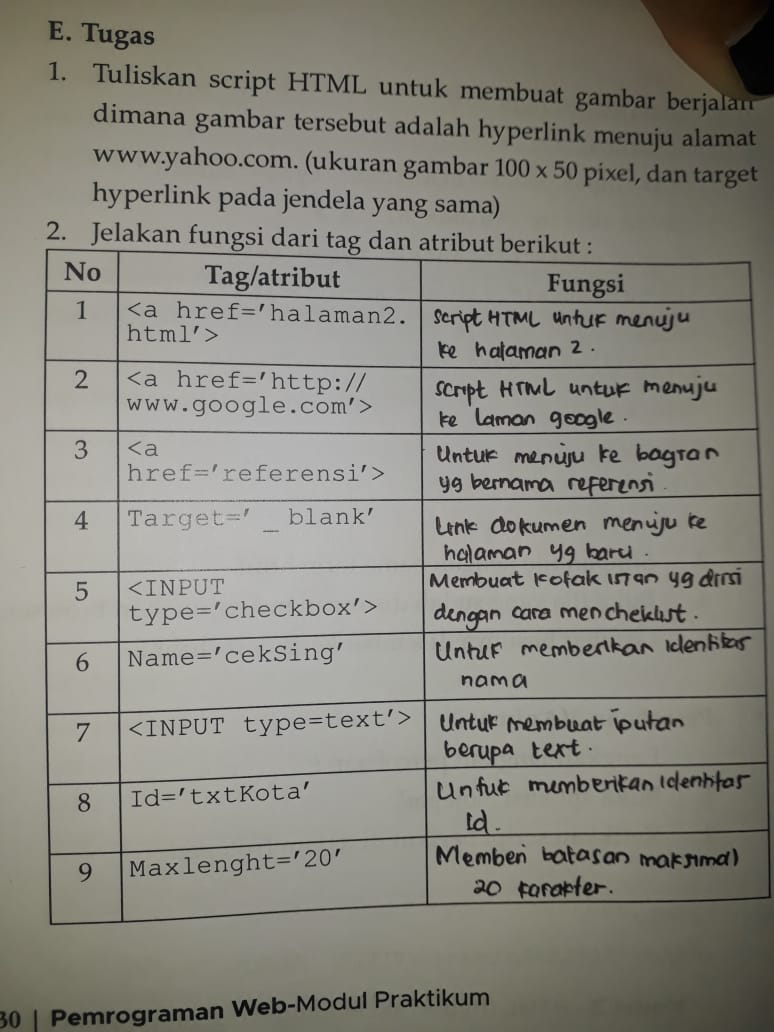 E. Tugas
1. Tuliskan script HTML untuk membuat gambar berjalan
dimana gambar tersebut adalah hyperlink menuju alamat
www.yahoo.com. (ukuran gambar 100 x 50 pixel, dan target
hyperlink pada jendela yang sama)
2. Jelakan fungsi dari tag dan atribut berikut :
No Tag/atribut Fungsi
1 <a href='halaman2. script HTML untuk menuju
html'> ke halaman 2.
2 <a href='http:// script HTML untuk menuju
www.google.com'> ke laman google.
3 <a Untuk menuju ke bagian
href='referensi'> yg bernama referensi.
4 Target=' _ blank' Link dokumen menuju ke
halaman yg baru.
5 <INPUT Membuat kotak isian yg diisi
type='checkbox'> dengan cara mencheklist.
6 Name='cekSing' Untuk memberikan identitas
nama
7 <INPUT type=text'> Untuk membuat iputan
berupa text.
8 Id='txtKota' Untuk memberikan identitas
Id.
9 Maxlenght='20' Memberi batasan maksimal
20 karakter.
30 | Pemrograman Web-Modul Praktikum